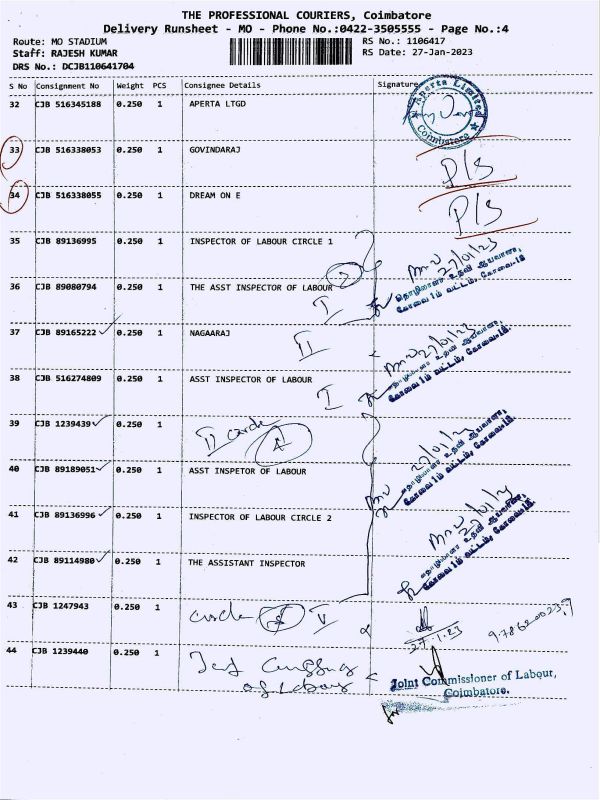 THE PROFESSIONAL COURIERS, Coimbatore
Delivery Runsheet - MO - Phone No.:0422-3505555 - Page No.:4
Route: MO STADIUM
RS No.: 1106417
Staff: RAJESH KUMAR
RS Date: 27-Jan-2023
DRS No.: DCJB110641704
S No Consignment No Weight PCS Consignee Details Signature
32 CJB 516345188 0.250 1 APERTA LTGD
Aperta Limited
Coimbatore
33 CJB 516338053 0.250 1 GOVINDARAJ P/S
34 CJB 516338055 0.250 1 DREAM ON E P/S
35 CJB 89136995 0.250 1 INSPECTOR OF LABOUR CIRCLE 1
27/01/23
36 CJB 89080794 0.250 1 THE ASST INSPECTOR OF LABOUR
I
தொழிலாளர் உதவி ஆய்வாளர்,
கோவை 1ம் வட்டம், கோவை-18.
37 CJB 89165222 0.250 1 NAGAARAJ
II
27/01/23
தொழிலாளர் உதவி ஆய்வாளர்,
கோவை 1ம் வட்டம், கோவை-18.
38 CJB 516274809 0.250 1 ASST INSPECTOR OF LABOUR
I
39 CJB 1239439 0.250 1 II circle 4
27/01/23
தொழிலாளர் உதவி ஆய்வாளர்,
கோவை 1ம் வட்டம், கோவை-18.
40 CJB 89189051 0.250 1 ASST INSPETOR OF LABOUR
41 CJB 89136996 0.250 1 INSPECTOR OF LABOUR CIRCLE 2
தொழிலாளர் உதவி ஆய்வாளர்,
கோவை 1ம் வட்டம், கோவை-18.
42 CJB 89114980 0.250 1 THE ASSISTANT INSPECTOR
43 CJB 1247943 0.250 1 circle V
27.1.23
44 CJB 1239440 0.250 1
of Labour
Joint Commissioner of Labour,
Coimbatore.